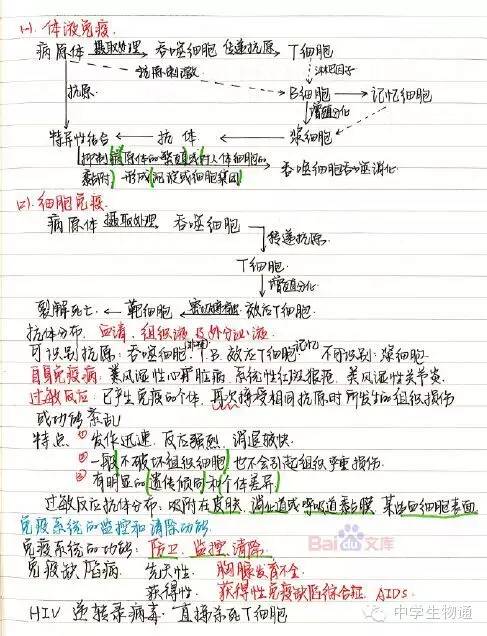 (一). 体液免疫.
病原体 摄取处理 吞噬细胞 传递抗原 T细胞
抗原刺激 淋巴因子
抗原 B细胞 记忆细胞
增殖分化
特异性结合 抗体 浆细胞
抑制病原体的繁殖或对人体细胞的
黏附 形成沉淀或细胞集团 吞噬细胞吞噬消化
(二). 细胞免疫.
病原体 摄取处理 吞噬细胞
传递抗原
T细胞
增殖分化
裂解死亡 靶细胞 密切接触 效应T细胞
抗体分布: 血清、组织液及外分泌液
可识别抗原: 吞噬细胞 T.B. 效应T细胞 记忆 不可识别: 浆细胞
自身免疫病: 类风湿性心脏病 系统性红斑狼疮. 类风湿性关节炎.
过敏反应: 已产生免疫的个体, 再次接受相同抗原时所发生的组织损伤
或功能紊乱
特点 ① 发作迅速、反应强烈、消退较快.
② 一般不破坏组织细胞 也不会引起组织严重损伤.
③ 有明显的遗传倾向和个体差异
过敏反应抗体分布: 吸附在皮肤、消化道或呼吸道黏膜, 某些血细胞表面
免疫系统的监控和清除功能
免疫系统的功能: 防卫、监控、清除.
免疫缺陷病 先天性: 胸腺发育不全.
获得性: 获得性免疫缺陷综合症. AIDS.
HIV 逆转录病毒. 直接杀死T细胞
Baidu文库
中学生物通